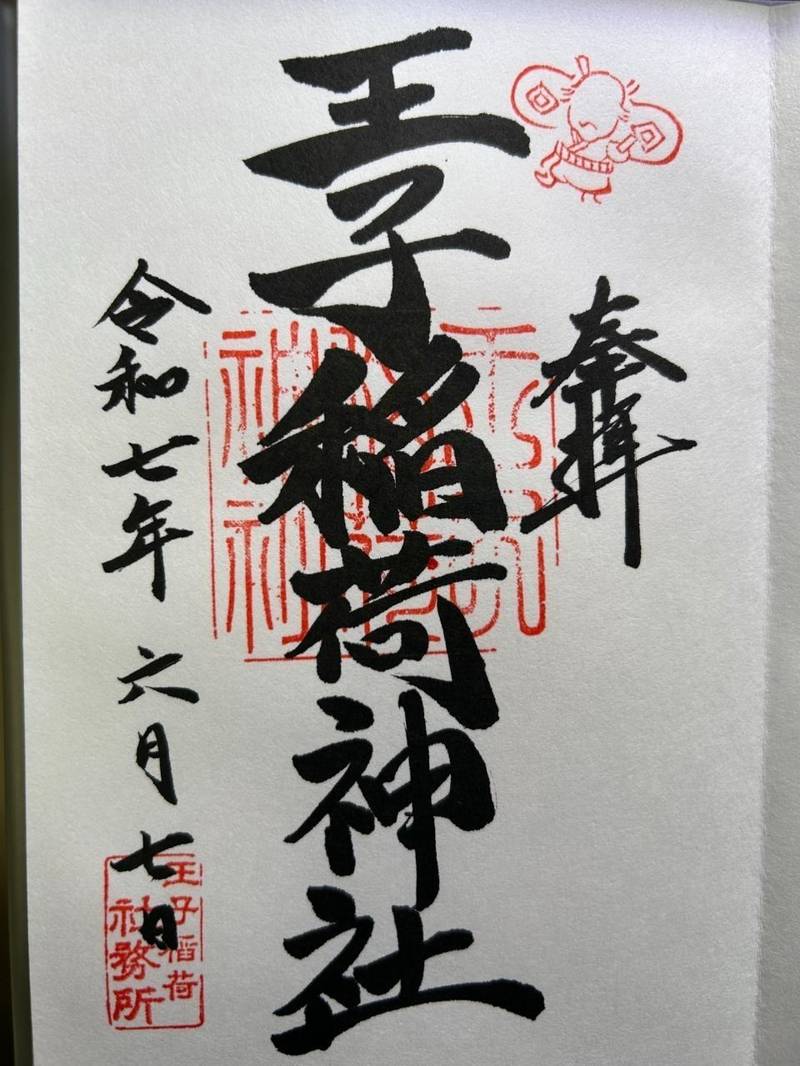 奉拝
王子稲荷神社
令和七年 六月 七日
王子稲荷
社務所